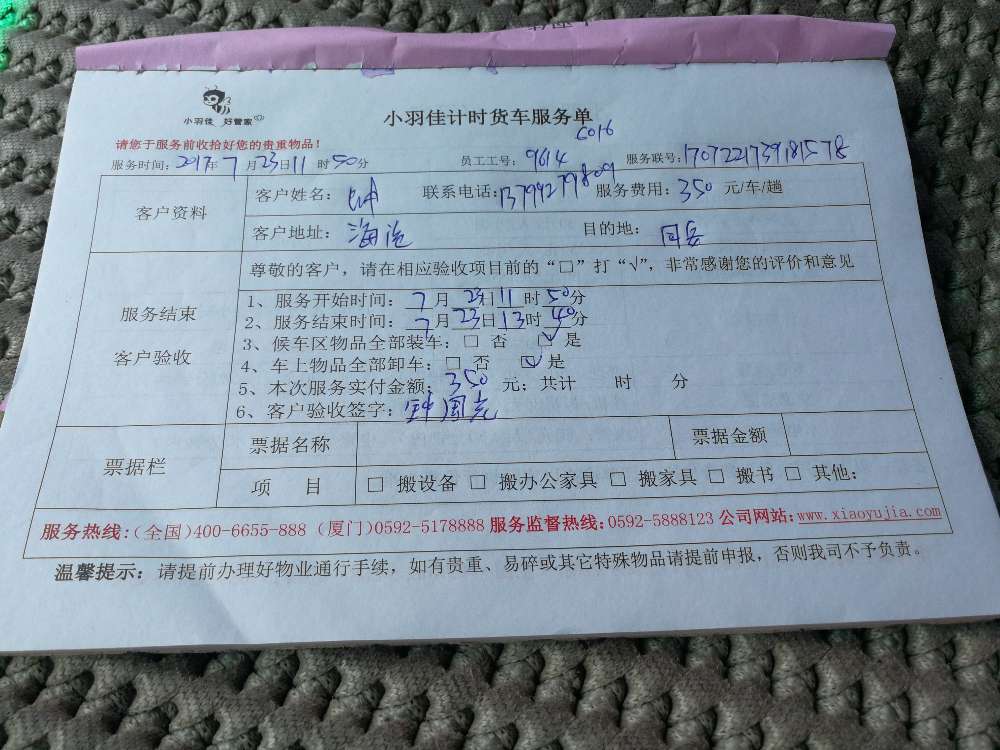 小羽佳 好管家
小羽佳计时货车服务单
C016
请您于服务前收拾好您的贵重物品！
服务时间：2017年7月23日11时50分 员工工号：9614 服务联号：1707221739181578
客户资料
客户姓名：钟 联系电话：13799279809 服务费用：350 元/车/趟
客户地址：海沧 目的地：同安
服务结束
客户验收
尊敬的客户，请在相应验收项目前的“□”打“√”，非常感谢您的评价和意见
1、服务开始时间：7月23日11时50分
2、服务结束时间：7月23日13时40分
3、候车区物品全部装车：□ 否 ☑ 是
4、车上物品全部卸车：□ 否 ☑ 是
5、本次服务实付金额：350 元；共计 时 分
6、客户验收签字：钟国亮
票据栏
票据名称 票据金额
项 目 □ 搬设备 □ 搬办公家具 □ 搬家具 □ 搬书 □ 其他：
服务热线：(全国)400-6655-888 (厦门)0592-5178888 服务监督热线：0592-5888123 公司网站：www.xiaoyujia.com
温馨提示：请提前办理好物业通行手续，如有贵重、易碎或其它特殊物品请提前申报，否则我司不予负责。